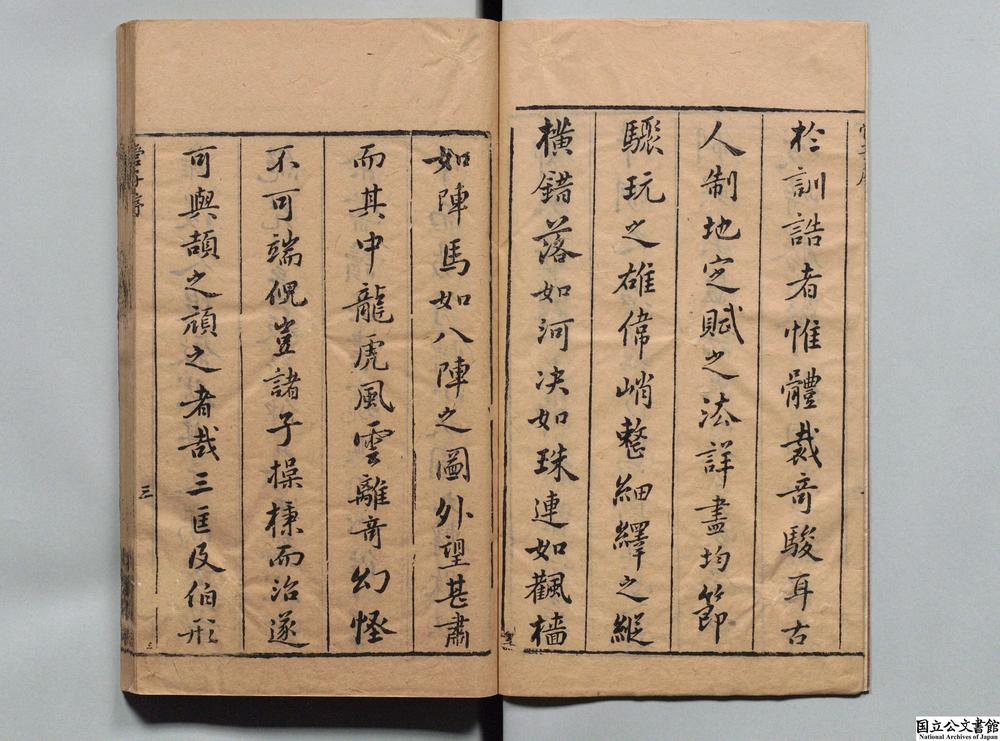 於訓誥者惟體裁奇駿耳古
人制地定賦之法詳盡均節
驟玩之雄偉峭整細繹之縱
橫錯落如河决如珠連如颿檣
如陣馬如八陣之圖外望甚肅
而其中龍虎風雲離奇幻怪
不可端倪豈諸子操而治遂
可與頡之頏之者哉三匡及伯形
三
国立公文書館
National Archives of Japan